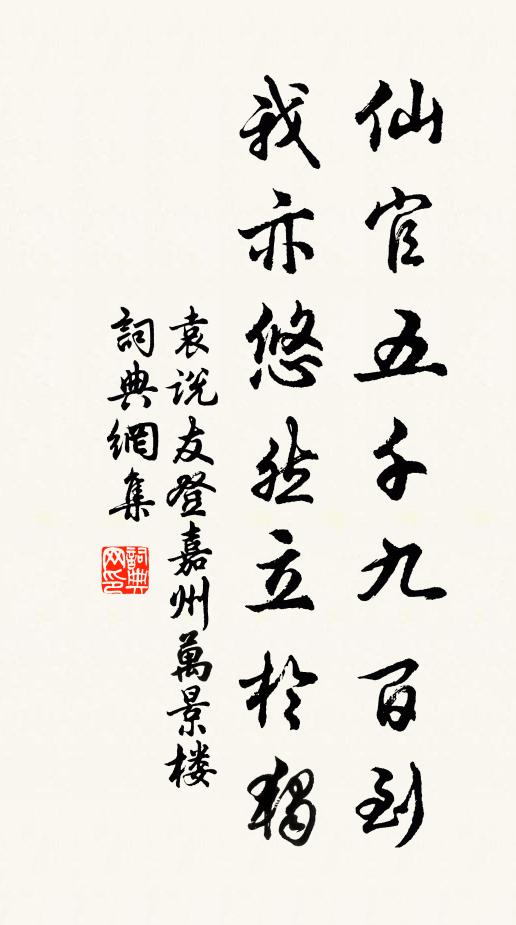 仙官五千九百到
我亦悠然立於獨
袁説友登嘉州萬景楼
詞典網集
詞典
网印